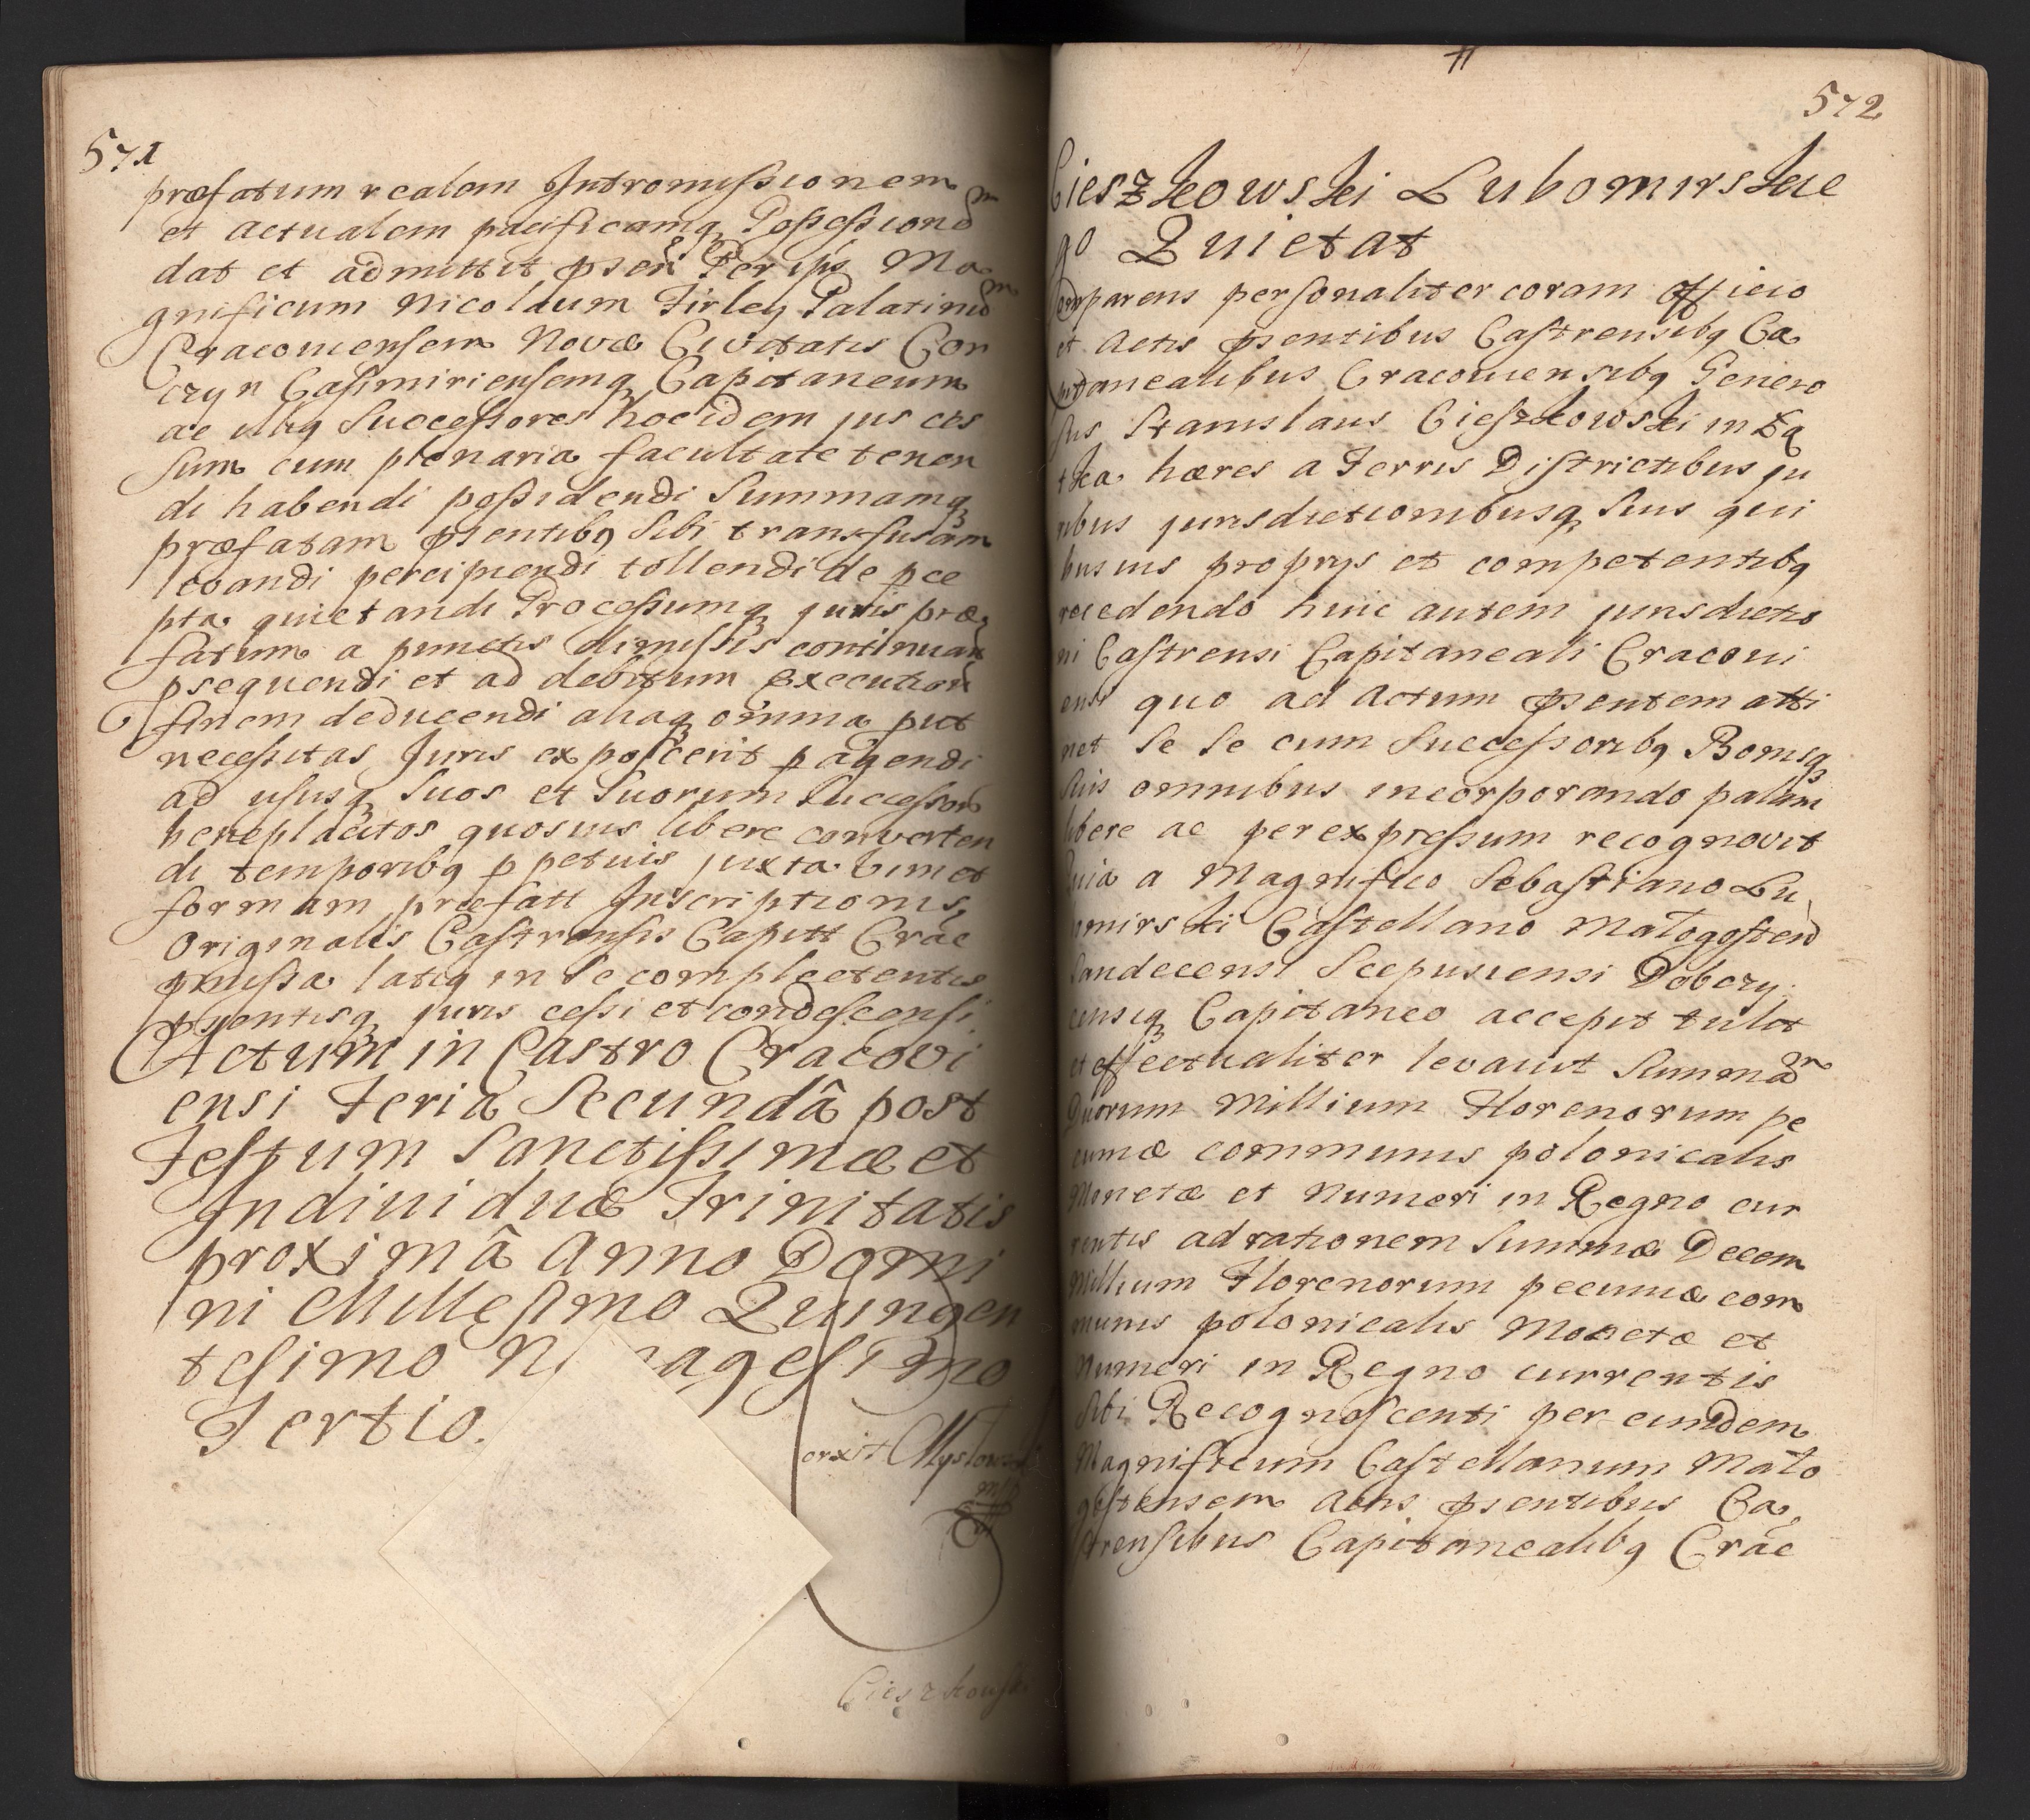 571
præfatum realem Intromissionem
et actualem pacificamq Possessionem
dat et admittit psen Per ips Ma
gnificum Nicolaum Firley Palatinum
Cracoviensem Novæ Civitatis Cor
czyn Casimiriensemq Capitaneum
ac illiq Successores hoc idem jus ces
sum cum plenaria facultate tenen
di habendi possidendi Summamq
præfatam psentibq Sibi transfusam
levandi percipiendi tollendi de perce
pta quietandi Processumq juris præ
fatum a punctis dimissis continuan
psequendi et ad debitum execution
finem deducendi aliaq omnia put
necessitas Juris exposcerit pagendi
ad ususq Suos et Suorum Successor
beneplacitos quosvis libere converten
di temporibq ppetuis juxta vim et
formam præfatt Inscriptionis
Originalis Castrensis Capitt Crac
pmissa latiq in Se complectentis
psentisq juris cessi et condescensi
Actum in Castro Cracovi
ensi Feria Secundâ post
Festum Sanctissimæ et
Individuæ Trinitatis
proximâ Anno Domi
ni Millesimo Quingen
tesimo N nagesimo
Tertio.
Cieszkowski
572
Cieszkowski Lubomirskie
go Quietat
Comparens personaliter coram officio
et Actis psentibus Castrensibq Ca
pitanealibus Cracoviensibq Genero
sus Stanislaus Cieszkowski in Łą
tka hæres a Terris Districtibus ju
ribus jurisdictionibusq Suis qui
busvis proprys et competentibq
recedendo huic autem jurisdictio
ni Castrensi Capitaneali Cracovi
ensi quo ad Actum psentem atti
net Se Se cum Successoribq Bonisq
Suis omnibus incorporando palam
libere ac per expressum recognovit
Quia a Magnifico Sebastiano Lu
bomirski Castellano Małogosten
Sandecensi Scepusiensi Dobczy
censiq Capitaneo accepit tulit
et effectualiter levavit Summam
Duorum Millium Florenorum pe
cuniæ communis polonicalis
Monetæ et Numeri in Regno cur
rentis ad rationem Summæ Decem
Millium Florenorum pecuniæ com
munis polonicalis Monetæ et
Numeri in Regno currentis
Sibi Recognoscenti per eundem
Magnificum Castellanum Mało
gostensem Actis psentibus Ca
strensibus Capitanealibq Crac